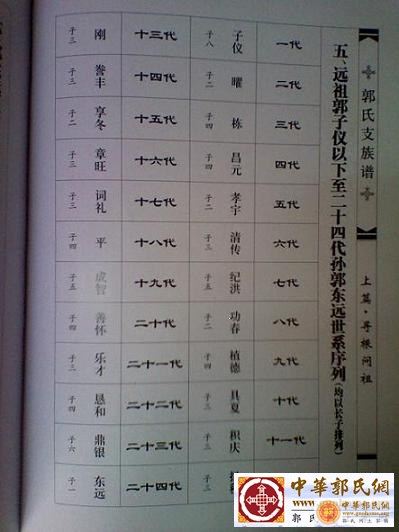 郭氏支族谱
上篇·寻根问祖
五、远祖郭子仪以下至二十四代孙郭东远世系序列(均以长子排列)
一代 子仪 子八
二代 曜 子二
三代 栋 子四
四代 昌元 子四
五代 孝宇 子二
六代 清传 子三
七代 纪洪 子五
八代 功春 子二
九代 植德 子四
十代 具夏 子三
十一代 积庆 子三
十三代 刚 子三
十四代 誉丰 子三
十五代 享冬 子二
十六代 章旺 子三
十七代 词礼 子三
十八代 平 子四
十九代 成智 子五
二十代 善怀 子四
二十一代 乐才 子三
二十二代 恳和 子四
二十三代 鼎银 子六
二十四代 东远 子一
中華郭氏網
中華郭氏網